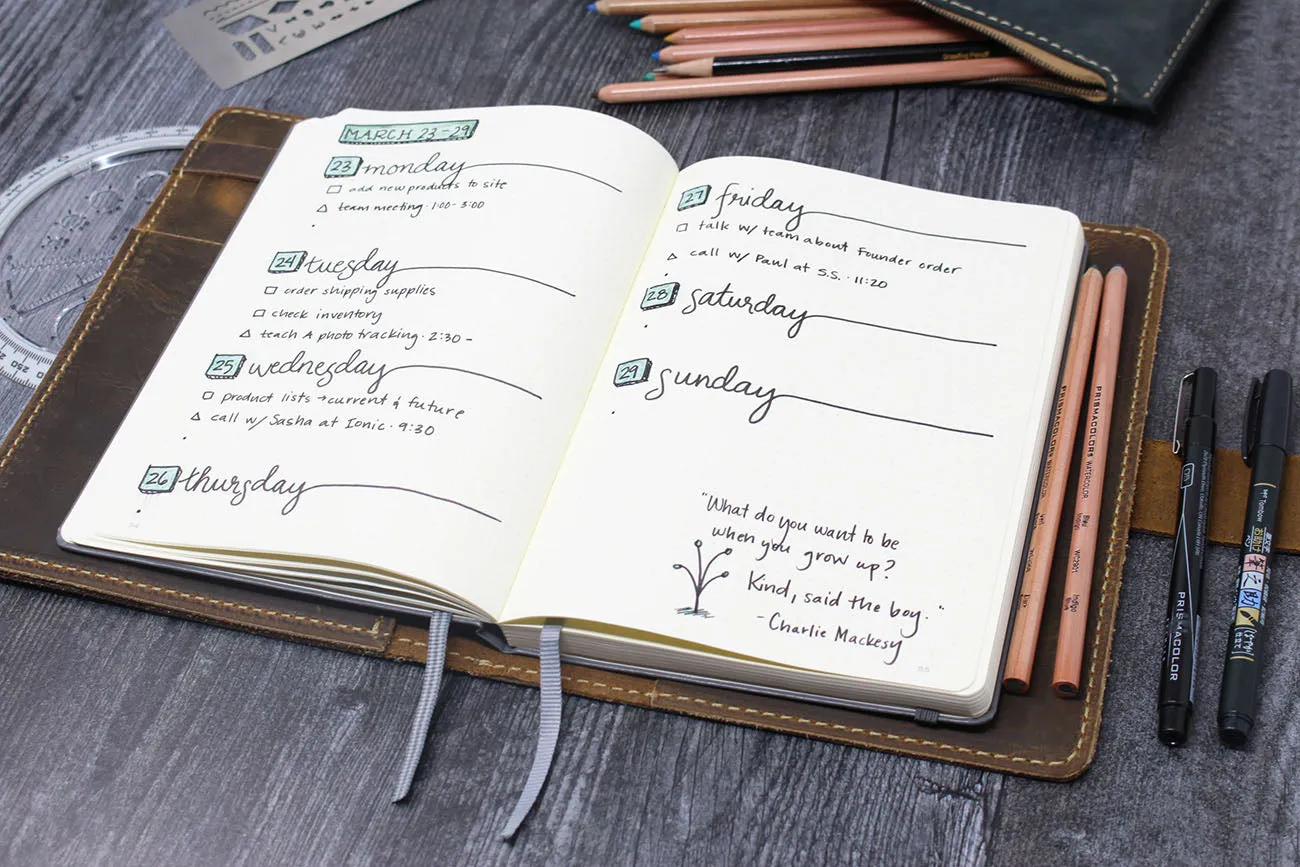 MARCH 23-29
23 monday
add new products to site
team meeting · 1:00-3:00
24 tuesday
order shipping supplies
check inventory
teach A photo tracking · 2:30-
25 wednesday
product lists → current & future
call w/ Sasha at Ionic · 9:30
26 thursday
27 friday
talk w/ team about Founder order
call w/ Paul at S.S. · 11:20
28 saturday
29 sunday
"What do you want to be
when you grow up?
Kind, said the boy."
- Charlie Mackesy
PRISMACOLOR WATERCOLOR
PRISMACOLOR WATERCOLOR
PRISMACOLOR
Tombow